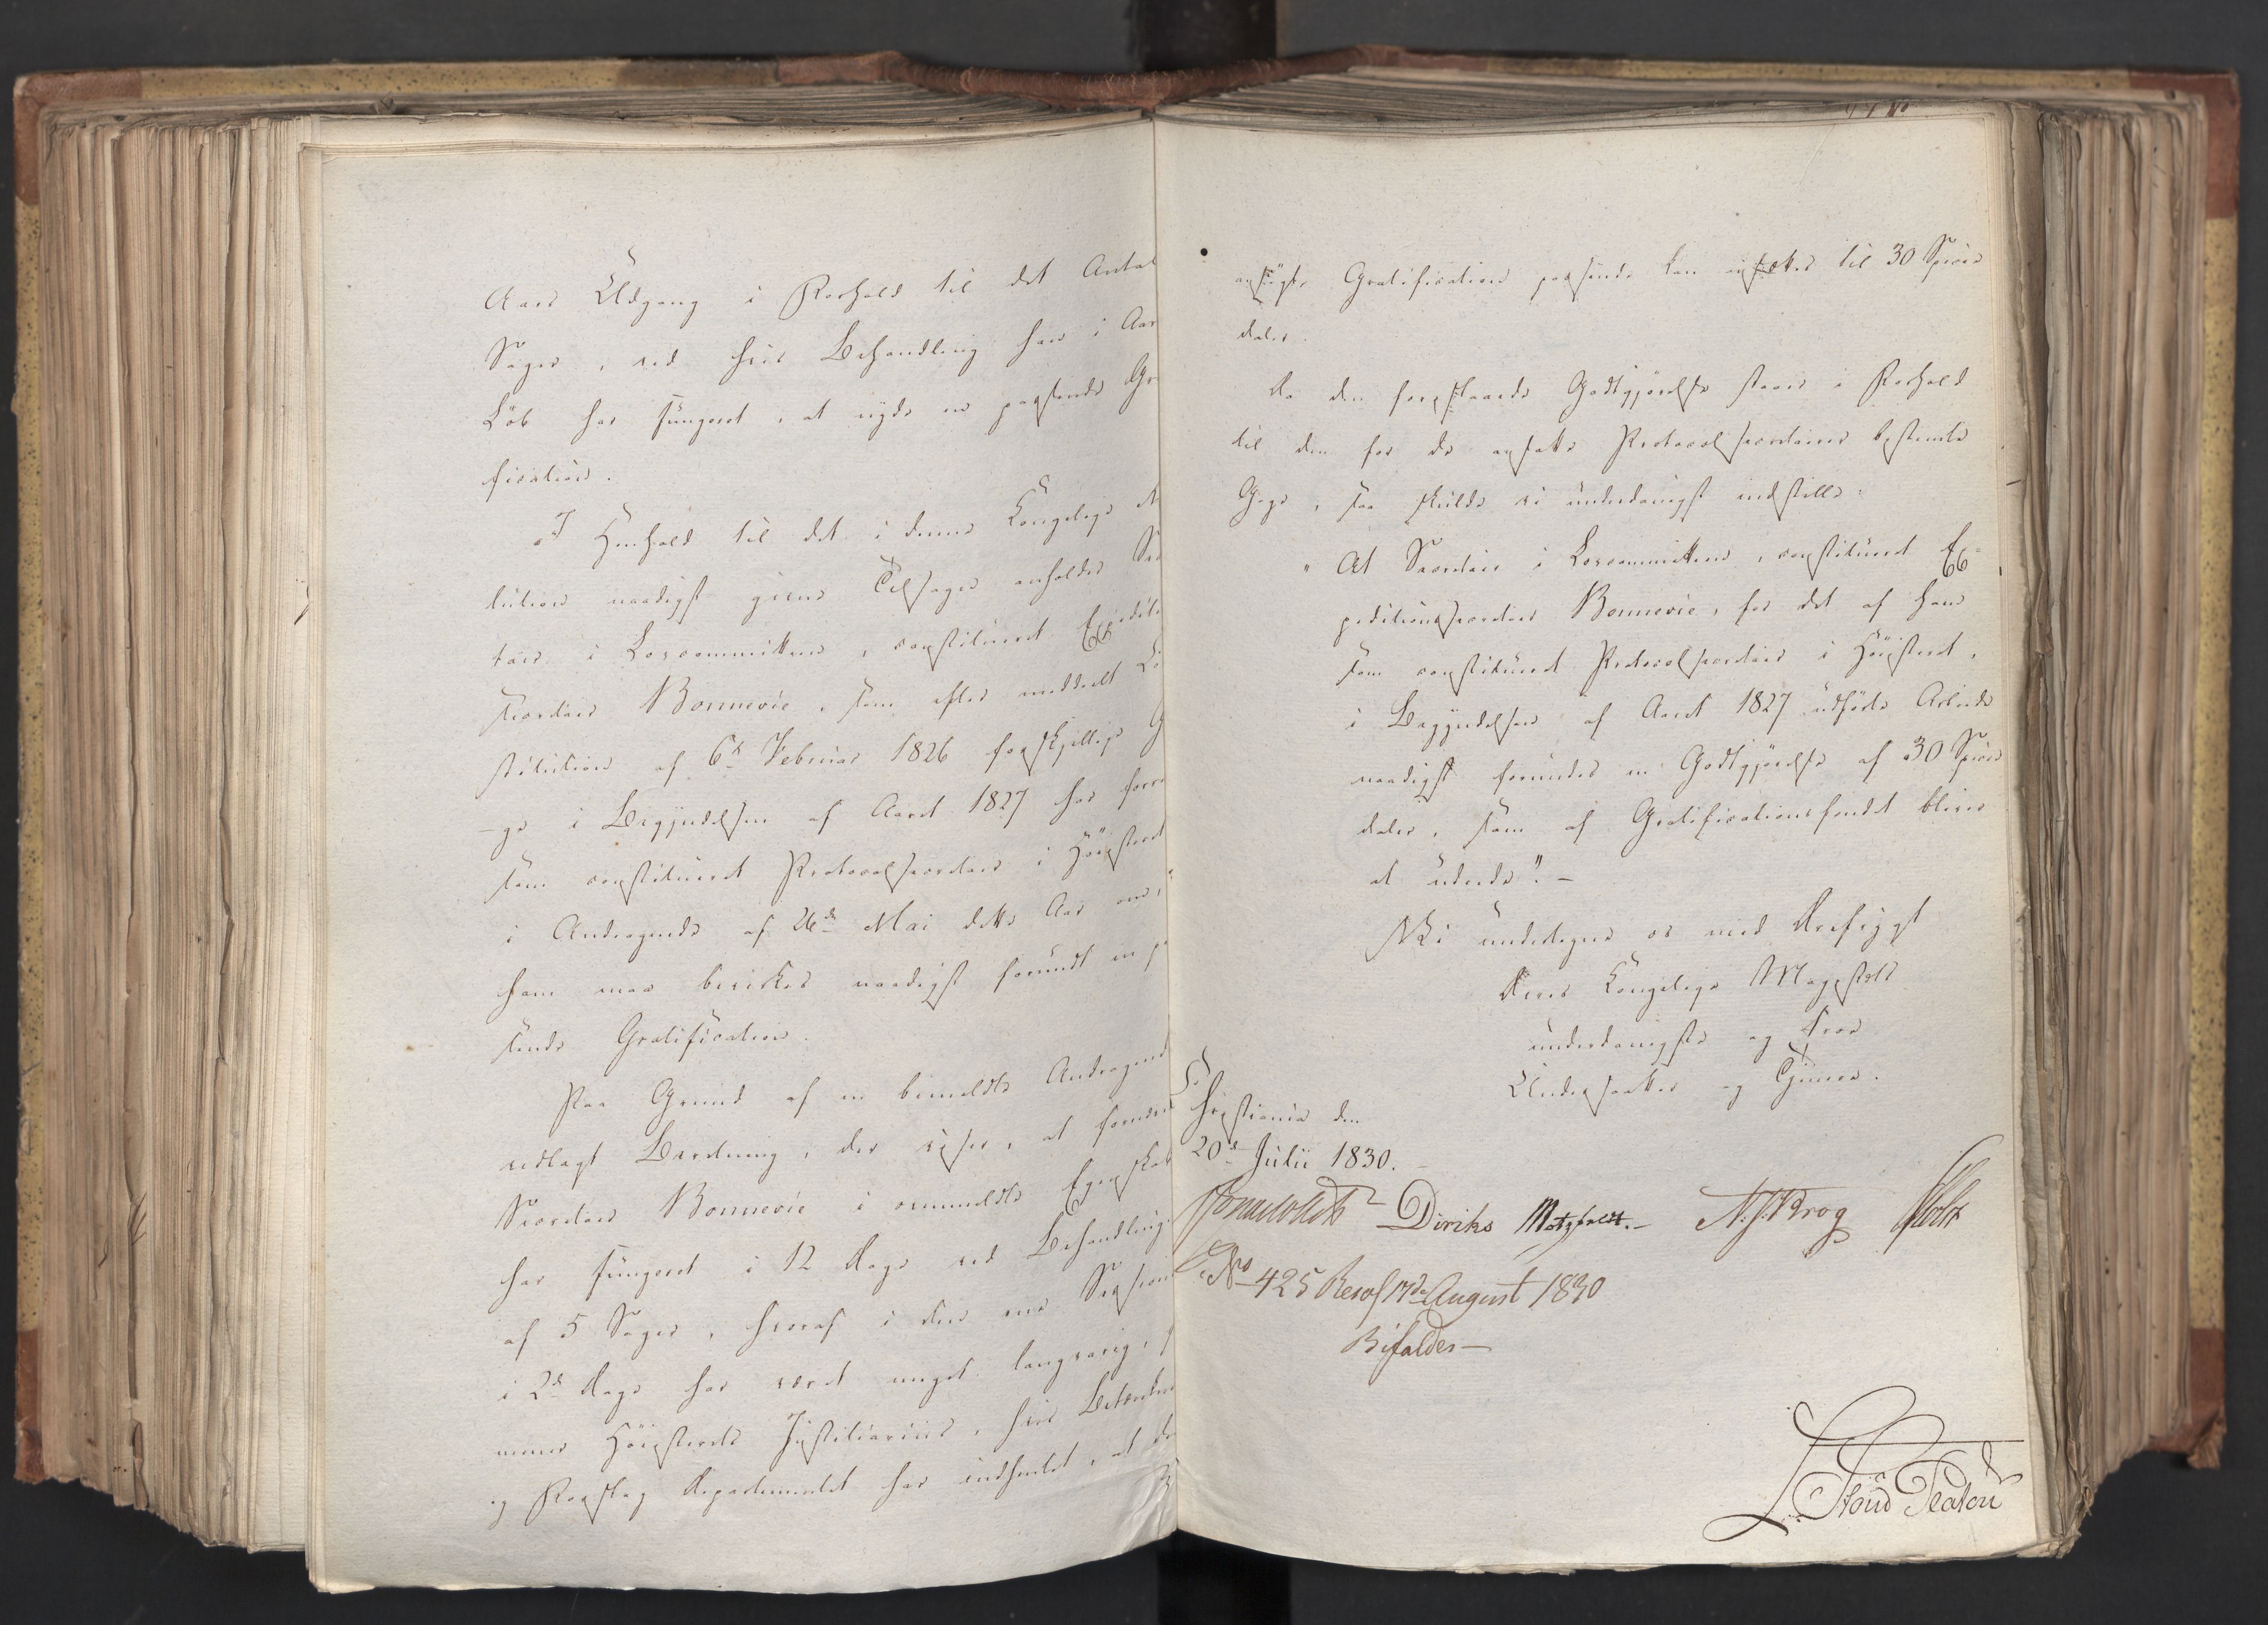 Aars Udgang i Forhold til det Antal
Sager, ved hvis Behandling han i Aar
Løb har fungeret, at nyde en passende Gr
fication.
I Henhold til det i denne Kongelige
lution naadigst givne Tilsagn anholder
tair i Lovcommitteen, constitueret Expediti
secretair Bonnevie, som efter meddeelt
stitution af 6te Februar 1826 forskjellige
ge i Begyndelsen af Aaret 1827 har
som constitueret Protocolsecretair i Høiesteret
i Andragende af 26de Mai dette Aar om,
ham maa bevirkes naadigst forundt en
sende Gratification.
Paa Grund af en bemeldte Andragend
vedlagt Beretning, der viser, at
Secretair Bonnevie i ommeldte Egenskab
har fungeret i 12 Dage ved Behandling
af 5 Sager, hvoraf i den ene Session
i 2de Dage har været meget langvarig,
mener Høiesterets Justitiarius, hvis Betænkn
og Forslag Departementet har indhentet, at
ansøgte Gratification passende kan ansættes til 30 Specie
daler.
Da den foreslaaede Godtgjørelse staaer i Forhold
til den for de ansatte Protocolsecretairer bestemte
Gage, saa skulde vi underdanigst indstille:
"At Secretair i Lovcommitteen, constitueret Ex-
peditionssecretair Bonnevie, for det af ham
som constitueret Protocolsecretair i Høiesteret,
i Begyndelsen af Aaret 1827 udførte Arbeide
naadigst forundes en Godtgjørelse af 30 Specie
daler, som af Gratificationsfondet bliver
at udrede". -
Vi undertegne os med Ærefrygt
Deres Kongelige Majestæts
underdanigste og troe
Undersaatter og Tjenere.
Christiania den
20de Julii 1830.
Diriks Motzfeldt. - N. J. Krog Holst
No 425 Resol 17de August 1830
Bifaldes -